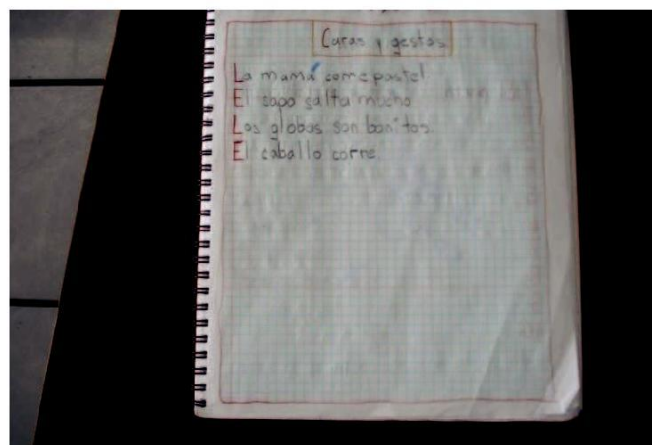 Caras y gestos
La mamá come pastel
El sapo salta mucho
Los globos son bonitos
El caballo corre